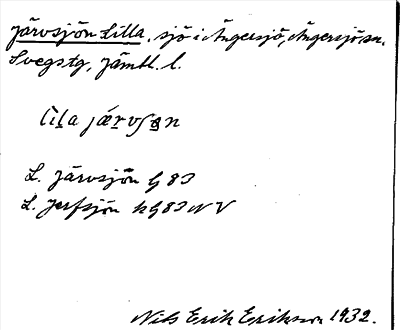 Järvsjön Lilla, sjö i Ängersjö, Ängersjö sn.
Svegs tg, Jämtl. l.
lìḷa jǽrvʃɵn
L. Järvsjön G 83
L. Jerfsjön kG 83 NV
Nils Erik Erikson 1932.